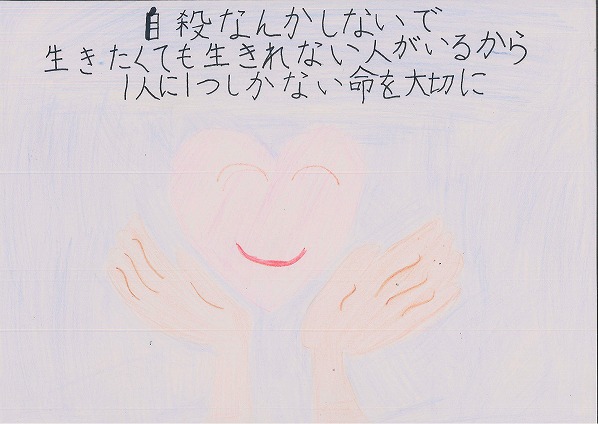 自殺なんかしないで
生きたくても生きれない人がいるから
1人に1つしかない命を大切に